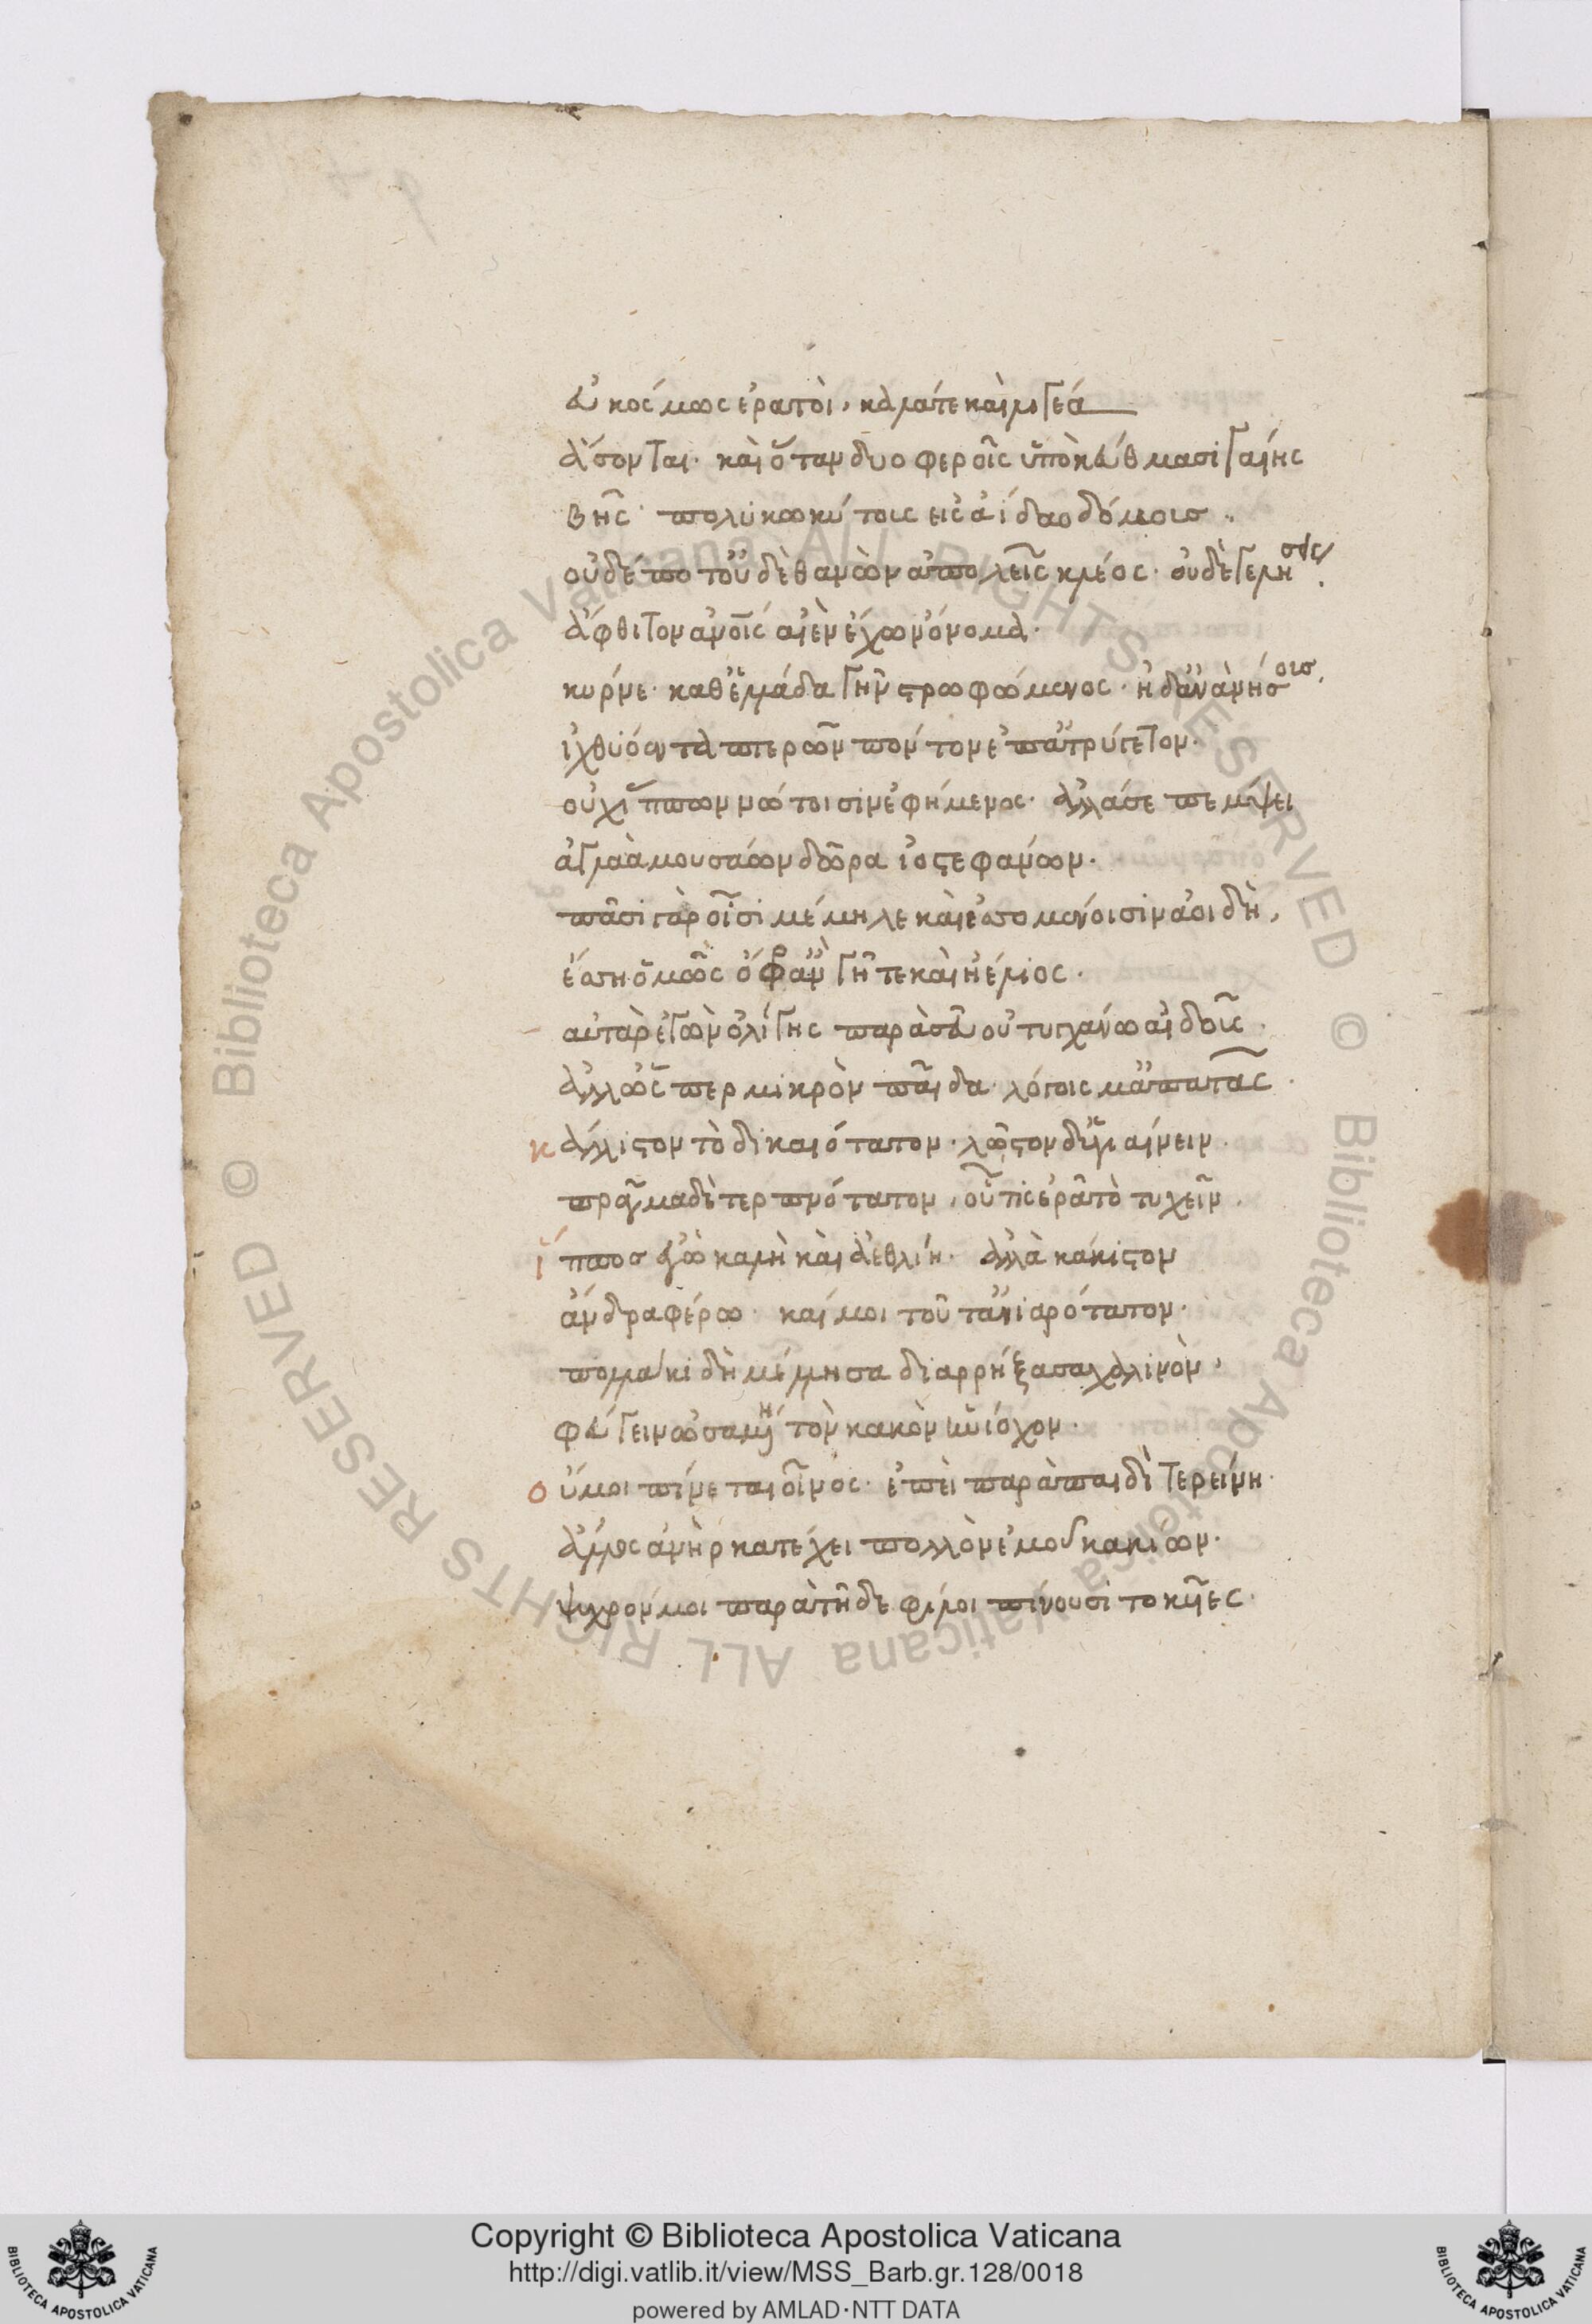 εὐκόσμως ἐρατοὶ, καλά τε καὶ λιγέα
ἄσονται. καὶ ὅταν δνοφεροῖς ὑπὸ κεύθμασι γαίης
βῇς πολυκωκύτους εἰς ἀίδαο δόμους.
οὐδέποτ' οὐδὲ θανὼν ἀπολεῖς κλέος. οὐδέ γε λήσεις
ἄφθιτον ἀν οῖς αἰὲν ἔχων ὄνομα.
κύρνε. καθ' ἑλλάδα γῆν στρωφώμενος. ἠδ' ἀνὰ νήσους
ἰχθυόεντα περῶν πόντον ἐπ' ἀτρύγετον.
οὐχ ἵππων νώτοισιν ἐφήμενος. ἀλλά σε πέμψει
ἀγλαὰ μουσάων δῶρα ἰοστεφάνων.
πᾶσι γὰρ οἷσι μέμηλε καὶ ἐσσομένοισιν ἀοιδὴ,
ἔσση ὁμῶς ὄφρ' ἂν γῆ τε καὶ ἠέλιος.
αὐτὰρ ἐγὼν ὀλίγης παρὰ σεῦ οὐ τυγχάνω αἰδοῖς.
ἀλλ' ὥσπερ μικρὸν παῖδα λόγοις μ' ἀπατᾶς.
κάλλιστον τὸ δικαιότατον. λῷστον δ' ὑγιαίνειν.
πρᾶγμα δὲ τερπνότατον, οὗ τις ἐρᾶ τὸ τυχεῖν.
ἵππος ἐγὼ καλὴ καὶ ἀεθλίη. ἀλλὰ κάκιστον
ἄνδρα φέρω. καί μοι τοῦτ' ἀνιαρότατον.
πολλάκι δὴ μέλλησα διαρρήξασα χαλινὸν,
φεύγειν ὠσαμένη τὸν κακὸν ἡνίοχον.
οὔ μοι πίνεται οἶνος. ἐπεὶ παρὰ παιδὶ τερείνῃ
ἄλλος ἀνὴρ κατέχει πολλὸν ἐμοῦ κακίων.
ψυχρόν μοι παρὰ τῇδε φίλοι πίνουσι τοκῆες.
Copyright © Biblioteca Apostolica Vaticana
http://digi.vatlib.it/view/MSS_Barb.gr.128/0018
powered by AMLAD·NTT DATA